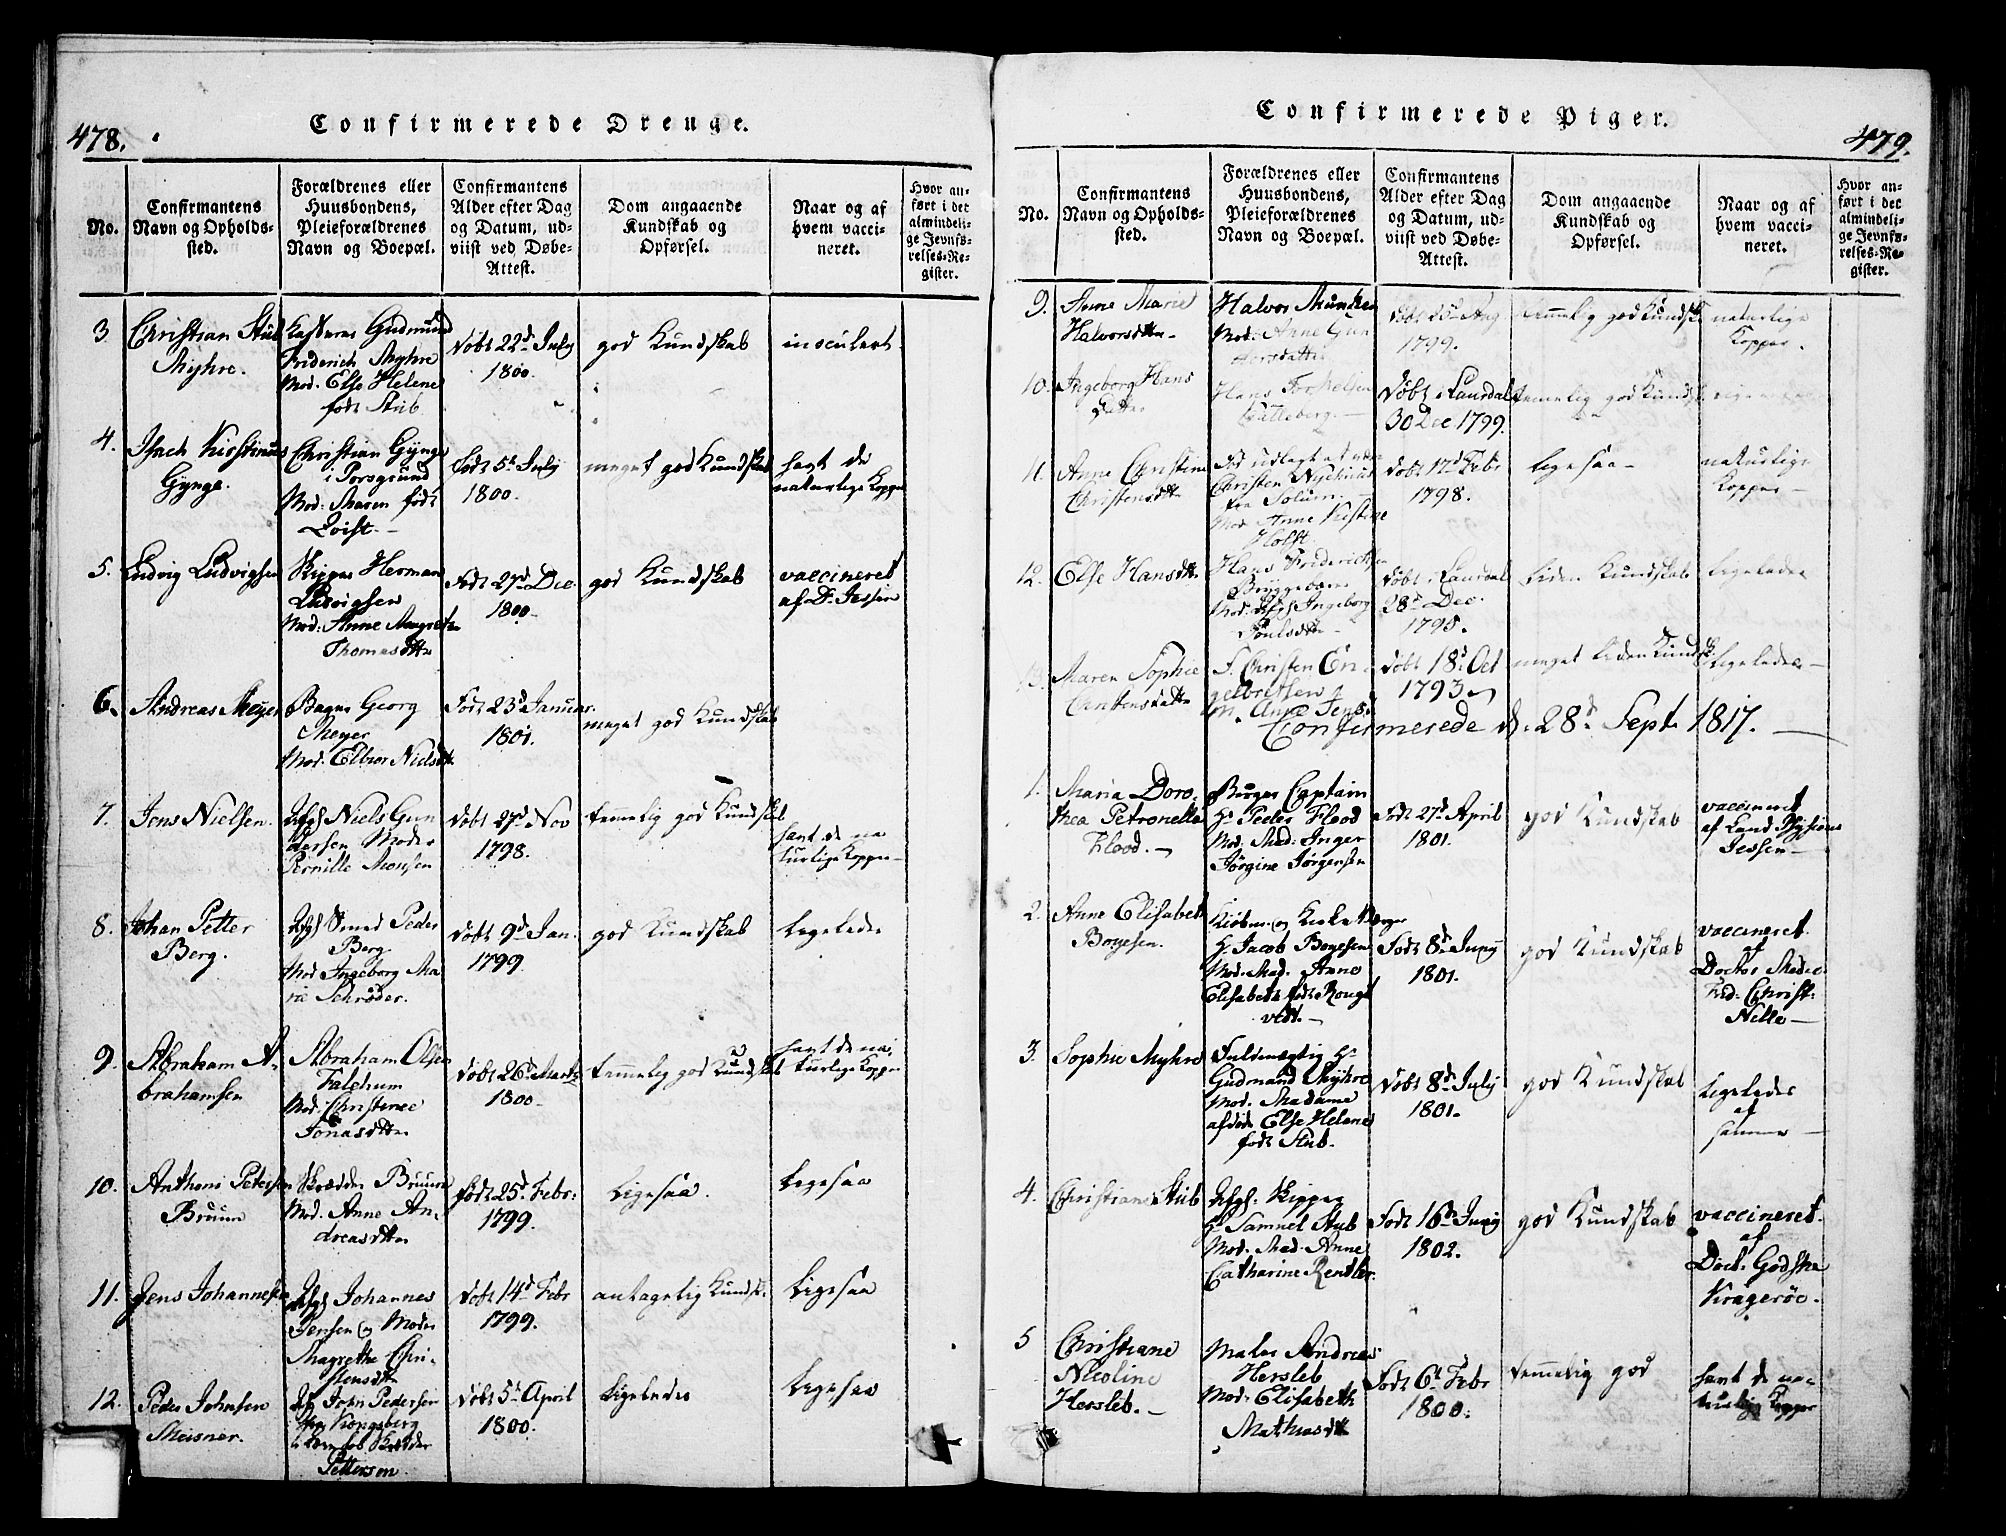 478.
Confirmerede Drenge.
No.
Confirmantens
Navn og Opholds-
sted.
Forældrenes eller
Huusbondens,
Pleieforældrenes
Navn og Boepæl.
Confirmantens
Alder efter Dag
og Datum, ud-
viist ved Døbe-
Attest.
Dom angaaende
Kundskab og
Opførsel.
Naar og af
hvem vacci-
neret.
Hvor an-
ført i det
almindeli-
ge Jevnfø-
relses-Re-
gister.
3
Christian Stub
Myhre.
Gudmund
Friderich Myhre
Mod. Else Helene
født Stub
Døbt 22d July
1800.
god Kundskab
inoculert.
4.
Isach Kirstinus
Gynge.
Christian Gynge
i Porsgrund
Mod: Maren født
Qvist.
Født 5t July
1800.
meget god Kundskab
havt de
naturlige Kopper
5.
Ludvig Ludvigsen
Skipper Herman
Ludvigsen
Mod: Anne Magrethe
Thomasdttr
Født 27d Dec.
1800
god Kundskab
vaccineret
af D. Jessen
6.
Andreas Meyer
Bager Georg
Meyer
Mod. Elbior Nielsdttr
Født 23d Januar.
1801.
meget god Kundskab
7.
Jens Nielsen.
Afg. Niels Gun
dersen Moder
Pernille Monsen
Døbt 27d Nov
1798.
temmelig god Kundskab
havt de na
turlige Kopper
8.
Johan Petter
Berg.
Afg. Smed Peder
Berg.
Mod Ingeborg Ma
rie Schrøder.
Døbt 9d Jan.
1799
god Kundskab
ligelede
9.
Abraham A-
brahamsen
Abraham Olsen
Falchum
Mod: Christence
Jonasdttr
Døbt 26d Marts
1800
temmelig god Kundskab
havt de na-
turlige Kopper
10.
Anthoni Petersen
Bruun
Skrædder Bruun
Mod. Anne An-
dreasdttr
født 25d Febr:
1799.
Ligesaa.
Ligesaa
11.
Jens Johannesen
Afg. Johannes
Jensen og Moder
Magrethe Chri-
stensdttr
Døbt 14d Febr
1799.
antagelig Kundsk.
Ligesaa
12.
Peder Johnsen
Meisner.
Afg. John Pedersen
Kongsberg
Skrædder
Petterson
Døbt 5t April
1800.
Ligeledes
Ligesaa
479.
Confirmerede Piger.
No.
Confirmantens
Navn og Opholds-
sted.
Forældrenes eller
Huusbondens,
Pleieforældrenes
Navn og Boepæl.
Confirmantens
Alder efter Dag
og Datum, ud-
viist ved Døbe-
Attest.
Dom angaaende
Kundskab og
Opførsel.
Naar og af
hvem vacci-
neret.
Hvor an-
ført i det
almindeli-
ge Jevnfø-
relses-Re-
gister.
9.
Anne Marie
Halvorsdttr
Halvor Munken
Mod. Anne Gun
dorsdatter
Døbt 25d Aug
1799.
temmelig god Kundsk.
naturlige
Kopper.
10.
Ingeborg Hans
dttr
Hans Torkelsen
Døbt i Laurdal
30 Dec 1799.
temmelig god Kundsk.
11.
Anne Christine
Christensdttr
Christen Nyehuus
fra Solum.
Mod Anne Kistine
Holst.
Døbt 17d Febr
1798.
ligesaa
naturlige
Kopper
12.
Else Hansdttr
Hans Friderichsen
Bryggebær
Mod. Afg. Ingeborg
Poulsdttr
Døbt i Laurdal
28d Dec.
1795.
liden Kundskab
ligeledes
13.
Maren Sophie
F. Christen En
gelbretsen
M. Anne Jens
Døbt 18d Oct
1793
meget liden Kundsk.
ligeledes
Confirmerede d. 28d Sept. 1817.
1.
Maria Doro.
thea Petronelle
Flood.
Borger Captain
Hr Peder Flood
Mod: Mad: Inger
Jørgine Jørgensen
Født 27d April
1801.
god Kundskab
vaccineret
af Land Physicus
Jessen
2.
Anne Elisabeth
Boyesen.
Kiøbm. og Kirke Værger
Hr Jacob Boyesen
Mod. Mad. Anne
Elisabeth født Rougt
vedt.
Født 8d Juny
1801.
god Kundskab
vaccineret
af
Doctor Medic.
Fred. Christ.
Nelle
3.
Sophie Myhre
Fuldmægtig Hr
Gudmand Myhre
Mod. Madame
afdøde Else Helene
født Stub.
Døbt 8d July
1801.
god Kundskab
Ligeledes
af
samme
4.
Christiane Stub
Afg. Skipper
Hr Samuel Stub
Mod. Mad. Anne
Catharine Rentler.
Født 16d Juny
1802.
god Kundskab
vaccineret
af
Doct. Godske
Kragerøe.
5
Christiane
Nicoline
Hersleb.
Maler Andreas
Hersleb
Mod: Elisabeth
Mathiasdtt
Født 6t Febr
1800.
temmelig god
havt de na-
turlige Kopper